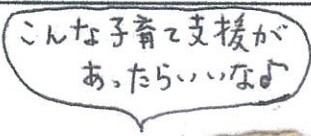 こんな子育て支援が
あったらいいな♪